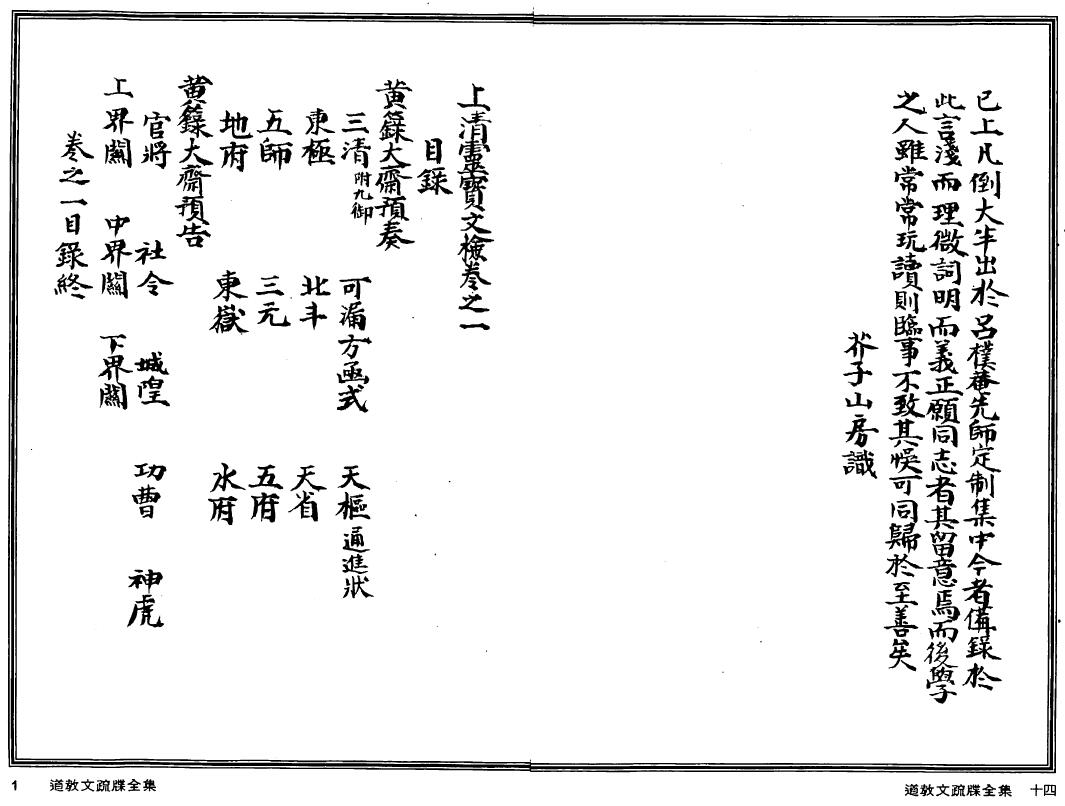 已上凡倒大半出於呂樸菴先師定制集中今者僃錄於
此言淺而理微詞明而義正願同志者其留意焉而後學
之人雖常常玩讀則臨事不致其悞可同歸於至善矣
芥子山房識
道教文疏牒全集 十四
上清靈寶文檢卷之一
目錄
黃籙大齋預奏
三清附九御 可漏方函式 天樞通進狀
東極 北斗 天省
五師 三元 五府
地府 東嶽 水府
黃籙大齋預告
官將 社令 城隍 功曹 神虎
上界關 中界關 下界關
卷之一目錄終
1 道教文疏牒全集